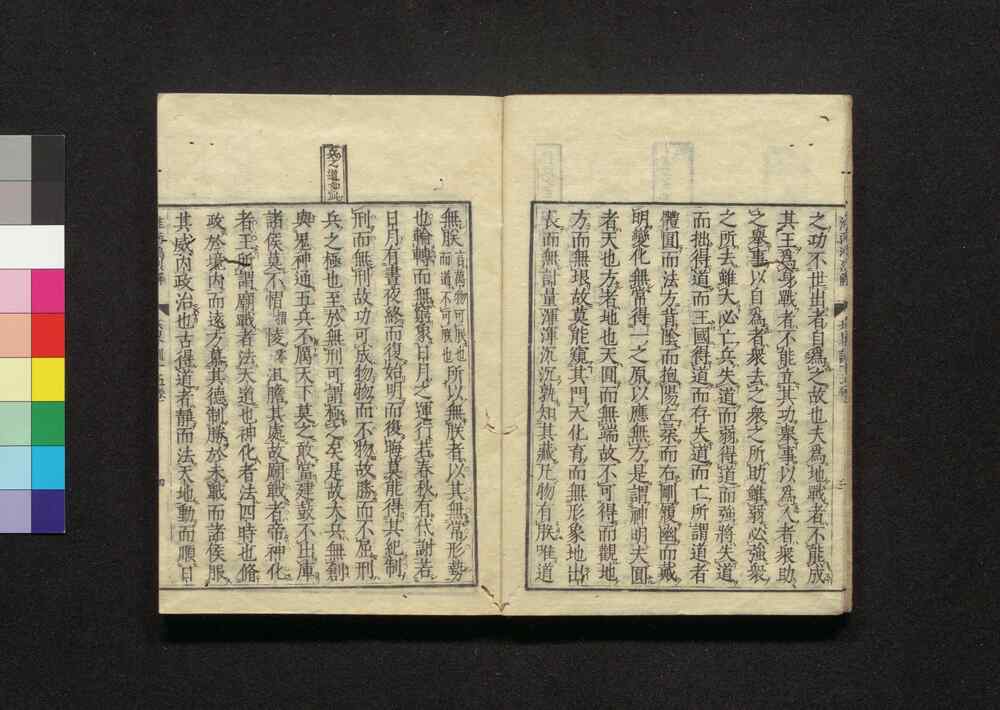 之功不世出者自爲之故也夫爲地戰者不能成
其王爲身戰者不能立其功舉事以爲人者衆助
之舉事以自爲者衆去之衆之所助雖弱必強衆
之所去雖大必亡兵失道而弱得道而強將失道
而拙得道而工國得道而存失道而亡所謂道者
體圓而法方背陰而抱陽左柔而右剛履幽而戴
明變化無常得一之原以應無方是謂神明夫圓
者天也方者地也天圓而無端故不可得而觀地
方而無垠故莫能窺其門天化育而無形象地出
長而無計量渾渾沉沉孰知其藏凡物有朕唯道
無朕言萬物可朕也而道不可朕也所以無朕者以其無常形勢
也輪轉而無窮象日月之運行若春秋有代謝若
日月有晝夜終而復始明而復晦莫能得其紀制
刑而無刑故功可成物物而不物故勝而不屈刑
兵之極也至於無刑可謂極之矣是故大兵無創
與鬼神通五兵不厲天下莫之敢當建鼓不出庫
諸侯莫不慴陵沮膽其處故廟戰者帝神化
者王所謂廟戰者法天道也神化者法四時也脩
政於境內而遠方慕其德制勝於未戰而諸侯服
其威內政治也古得道者靜而法天地動而順日